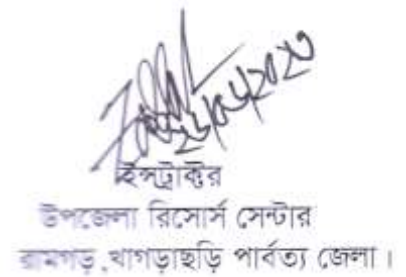 ইন্সট্রাক্টর
উপজেলা রিসোর্স সেন্টার
রামগড় ,খাগড়াছড়ি পার্বত্য জেলা।